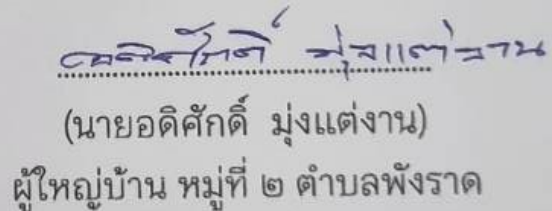 อดิศักดิ์ มุ่งแต่งาน
(นายอดิศักดิ์ มุ่งแต่งาน)
ผู้ใหญ่บ้าน หมู่ที่ ๒ ตำบลพังราด